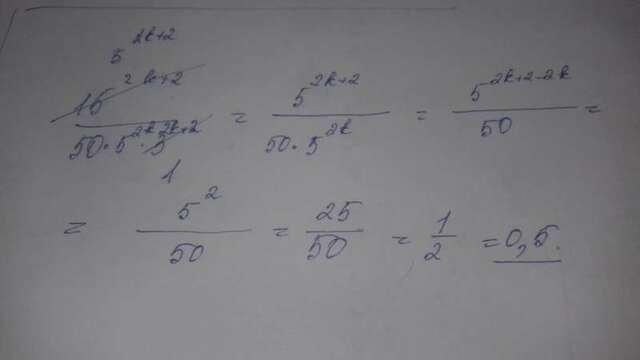 5^{2k+2}
\frac{15^{2k+2}}{50 \cdot 5^{2k} \cdot 3^{2k+2}} = \frac{5^{2k+2}}{50 \cdot 5^{2k}} = \frac{5^{2k+2-2k}}{50} =
1
= \frac{5^2}{50} = \frac{25}{50} = \frac{1}{2} = 0,5.